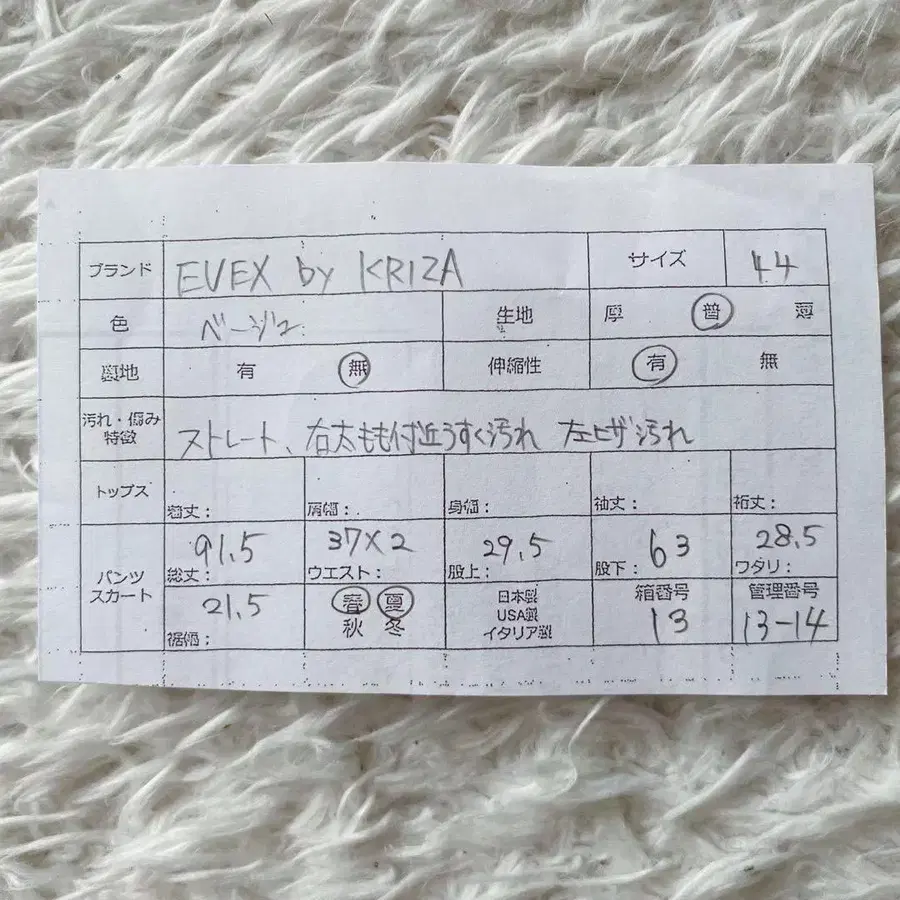 ブランド EVEX by KRIZA サイズ 44
色 ベージュ 生地 厚 普 薄
裏地 有 無 伸縮性 有 無
汚れ・傷み
特徴 ストレート、右太もも付近うすく汚れ 左ヒザ汚れ
トップス 着丈: 肩幅: 身幅: 袖丈: 裄丈:
パンツ
スカート
91.5 37×2 29.5 63 28.5
総丈: ウエスト: 股上: 股下: ワタリ:
21.5 春 夏 日本製 箱番号 管理番号
裾幅: 秋 冬 USA製 13 13-14
イタリア製